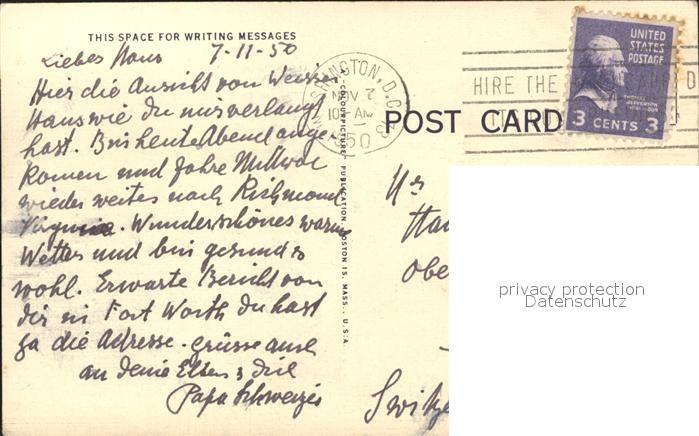 THIS SPACE FOR WRITING MESSAGES
Liebes Hans 7-11-50
Hier die Ansicht von Weisse
Haus wie du mir verlangt
hast. Bin heute Abend ange-
komen und fahre Mittwo
wieder weites nach Richmond
Virginia. Wunderschönes warm
Wetter und bin gesund &
wohl. Erwarte Bericht von
dir in Fort Worth du hast
ja die Adresse. grüsse auch
an deine Eltern & die
Papa Schweizer
COLOURPICTURE PUBLICATION, BOSTON 15, MASS., U.S.A.
WASHINGTON, D.C.
NOV 7
10 AM
1950
HIRE THE
POST CARD
UNITED
STATES
POSTAGE
THOMAS
JEFFERSON
3 CENTS 3
Hr
Han
Obe
Switze
privacy protection
Datenschutz